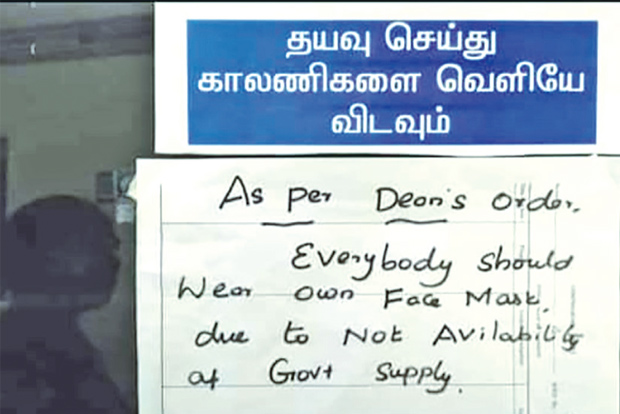 தயவு செய்து
காலணிகளை வெளியே
விடவும்
As per Dean's order.
Everybody should
Wear own Face Mask,
due to Not Avilability
of Govt Supply.